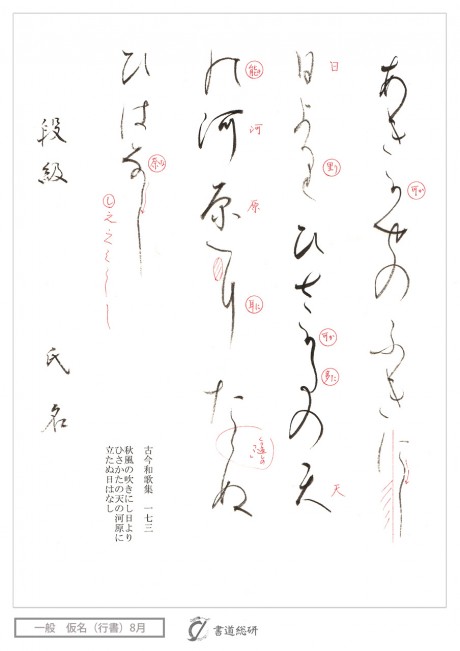 あき可せのふきにし
日より日野りひさ可多の天
能河原耳たゝぬ
ひはなし
段級 氏名
古今和歌集 一七三
秋風の吹きにし日より
ひさかたの天の河原に
立たぬ日はなし
一般 仮名（行書）8月
書道総研